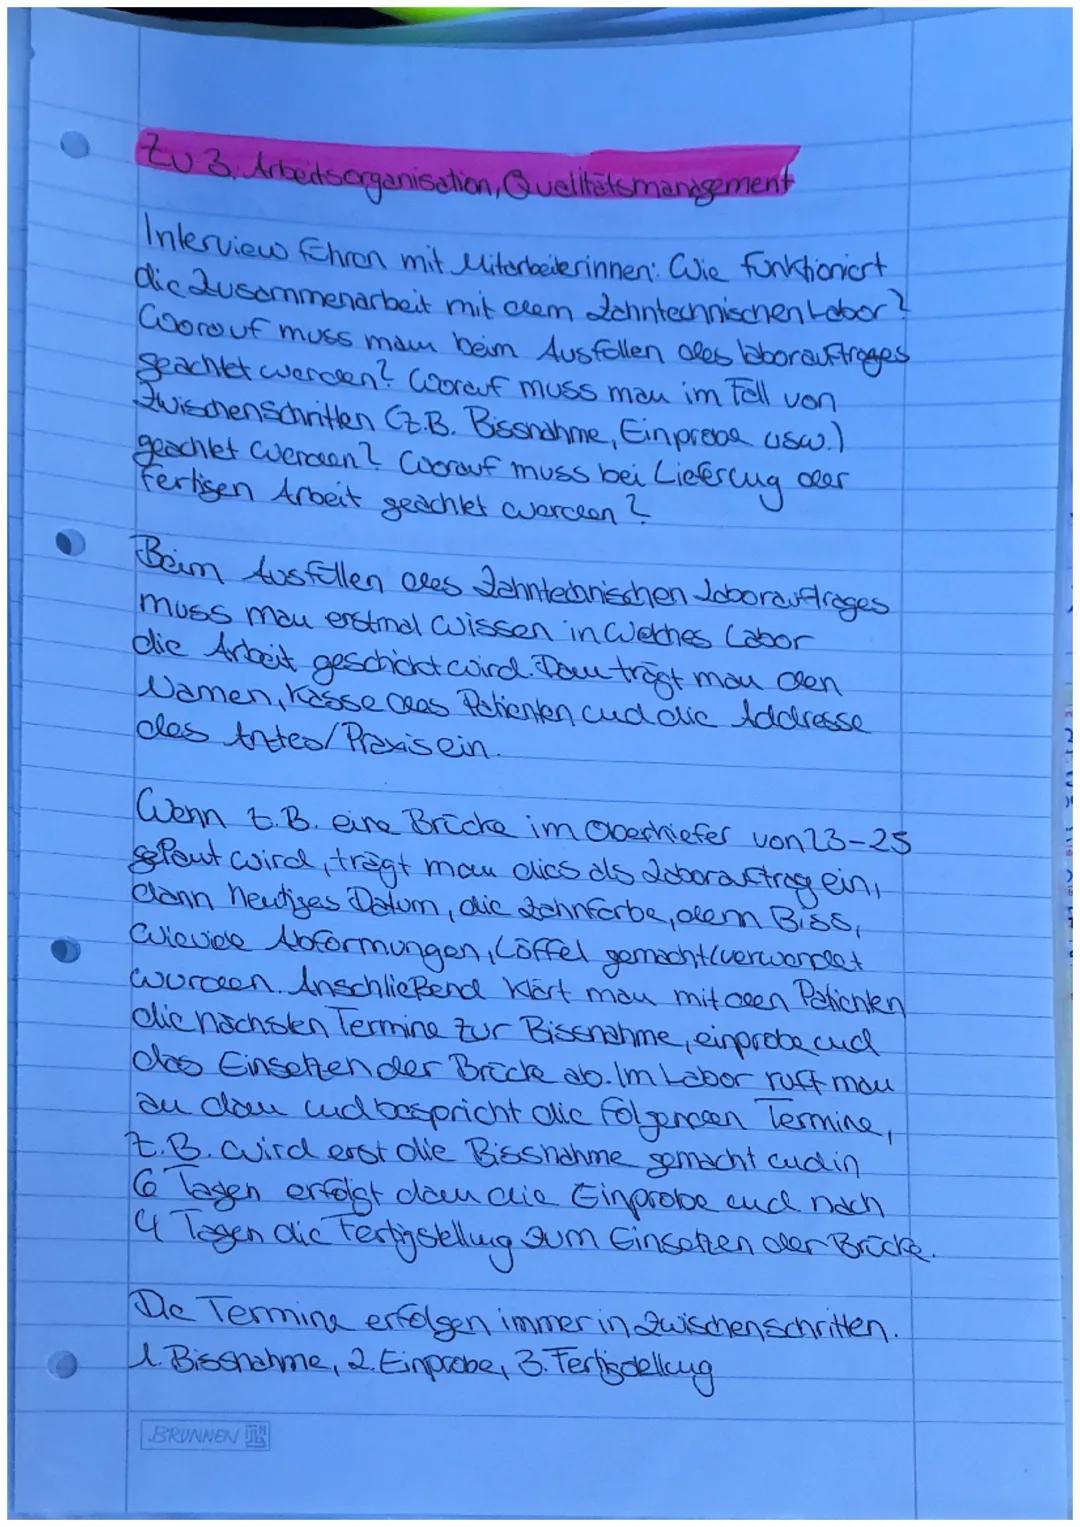 Zu 3. Arbeitsorganisation, Qualitätsmanagement
Interview führen mit Mitarbeiterinnen: Wie funktioniert
die Zusammenarbeit mit dem Zahntechnischen Labor?
Worauf muss man beim Ausfüllen des laborauftrages
geachtet werden? Worauf muss man im Fall von
Zwischenschritten (z.B. Bissnahme, Einprobe usw.)
geachtet werden? Worauf muss bei Lieferung der
fertigen Arbeit geachtet werden?
Beim Ausfüllen des Zahntechnischen Laborauftrages
muss man erstmal wissen in welches Labor
die Arbeit geschickt wird. Dann trägt man den
Namen, Kasse des Patienten und die Addresse
des Arztes/Praxis ein.
Wenn z.B. eine Brücke im Oberkiefer von 23-25
geplant wird, trägt man dies als Laborauftrag ein,
dann heutiges Datum, die Zahnfarbe, dem Biss,
wieviele Abformungen, Löffel gemacht/verwendet
wurden. Anschließend klärt man mit den Patienten
die nächsten Termine zur Bissnahme, einprobe und
das Einsetzen der Brücke ab. Im Labor ruft man
an dann und bespricht die folgenden Termine,
z.B. wird erst die Bissnahme gemacht und in
6 Tagen erfolgt dann die Einprobe und nach
4 Tagen die Fertigstellung zum Einsetzen der Brücke.
Die Termine erfolgen immer in Zwischenschritten.
1. Bissnahme, 2. Einprobe, 3. Fertigstellung
BRUNNEN